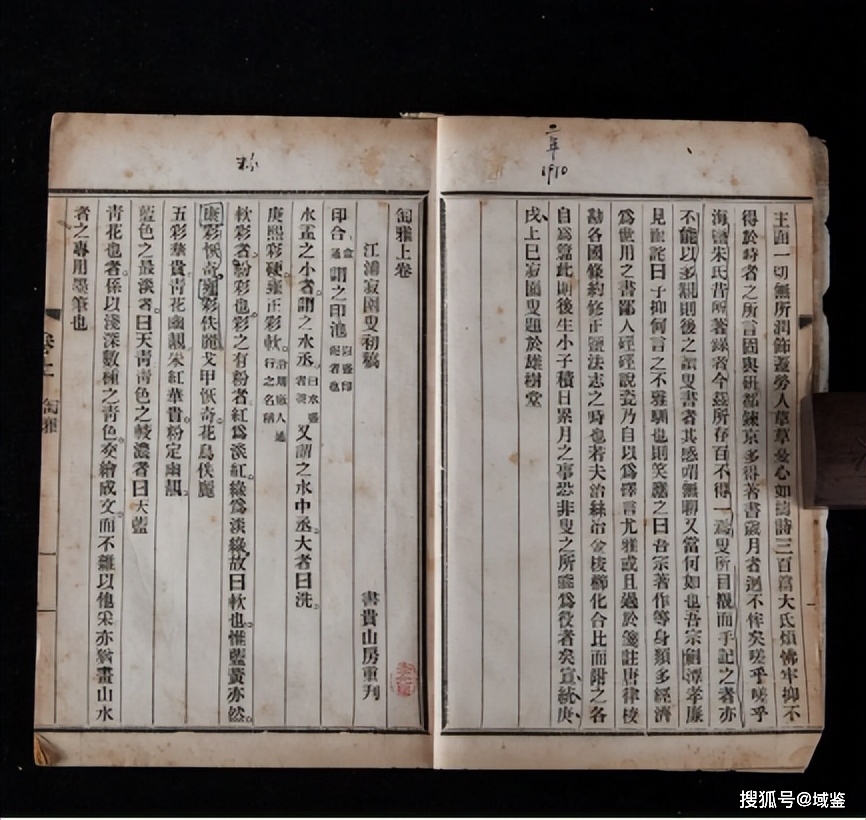 二年
1910
王面一切無所潤飾蓋勞人草草憂心如擣詩三百篇大氐煩怫牢抑不
得於時者之所言固與研都鍊京多得著書歲月者迥不侔矣嗟乎嗟乎
海鹽朱氏昔所著錄者今茲所存百不得一為叟所目覩而手記之者亦
不能以多覯則後之讀叟書者其感喟無聊又當何如也吾宗嗣潭孝廉
見而詫曰子抑何言之不雅馴也則笑應之曰吾宗著作等身類多經濟
為世用之書鄙人硜硜說瓷乃自以為擇言尤雅或且過於箋註唐律校
勘各國條約修正鹽法志之時也若夫冶絲冶金梭櫛化合比而附之各
自為篇此則後生小子積日累月之事恐非叟之所能為役者矣宣統庚
戌上巳寂園叟題於雄樹堂
匋雅上卷
江浦寂園叟初稿
書貴山房重刋
印合謂之印池
水盂之小者謂之水丞又謂之水中丞大者曰洗
康熙彩硬雍正彩軟
軟彩者粉彩也彩之有粉者紅為淡紅綠為淡綠故曰軟也惟藍黃亦然
康彩恢奇雍彩佚麗戈甲恢奇花鳥佚麗
五彩華貴靑花幽靚朱紅華貴粉定幽靚
藍色之最淡者曰天靑靑色之較濃者曰天藍
靑花也者係以淺深數種之靑色交繪成文而不雜以他采亦猶畫山水
者之專用墨筆也
卷上
匋雅
搜狐号@域鉴